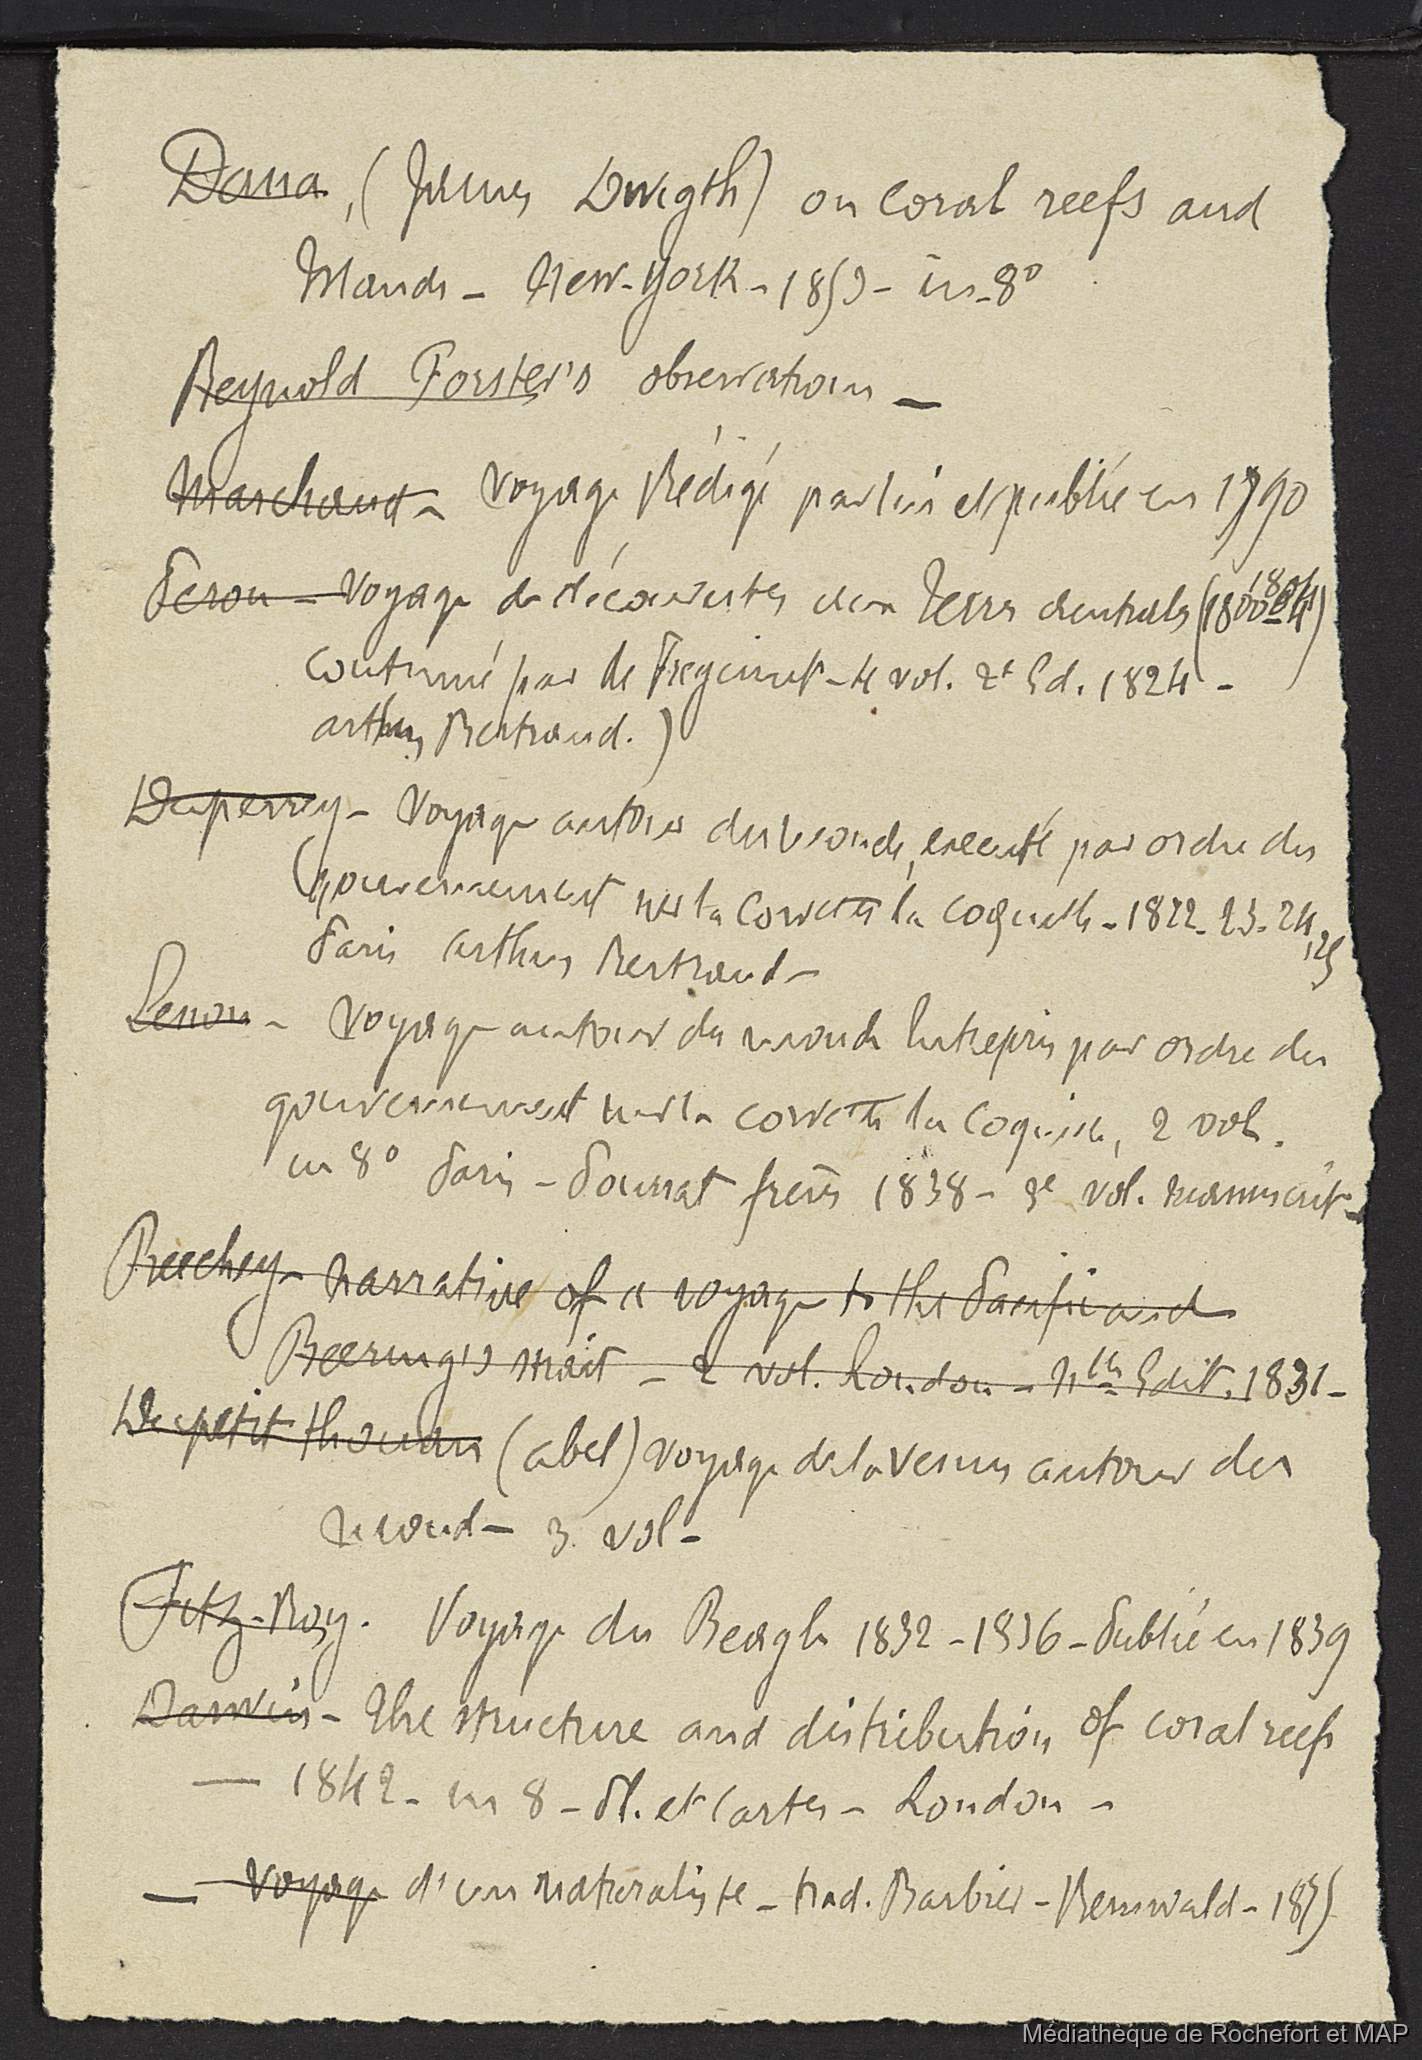 Dana, (James Dwigth) on Coral reefs and
Islands - New-York - 1853 - in-8°
Reynold Forster's observations -
Marchand - Voyage Rédigé par lui et publié en 1790
Peron - Voyage de découvertes aux Terres australes (1800 1804)
continué par de Freycinet - 4 vol. 2e Ed. 1824 -
arthus Bertrand.)
Duperrey - Voyage autour du monde, executé par ordre du
Gouvernement sur la Corvette la coquille - 1822 - 23 - 24, 25
Paris arthus Bertrand -
Lesson - Voyage autour du monde Entrepris par ordre du
gouvernement sur la corvette la Coquille, 2 vol.
in 8° Paris - Pourrat frères 1838 - 3e vol. manuscrit -
Beechey - narrative of a voyage to the Pacific and
Beering's strait - 2 vol. London - Edit. 1831 -
Dupetit thouars (abel) voyage de la Venus autour du
monde - 3 vol -
Fitz-Roy. Voyage du Beagle 1832 - 1836 - Publié en 1839
Darwin - The structure and distribution of coral reefs
— 1842 - in 8 - Pl. et Cartes - London -
— Voyage d'un naturaliste - trad. Barbier - Reinwald - 1875
Médiathèque de Rochefort et MAP